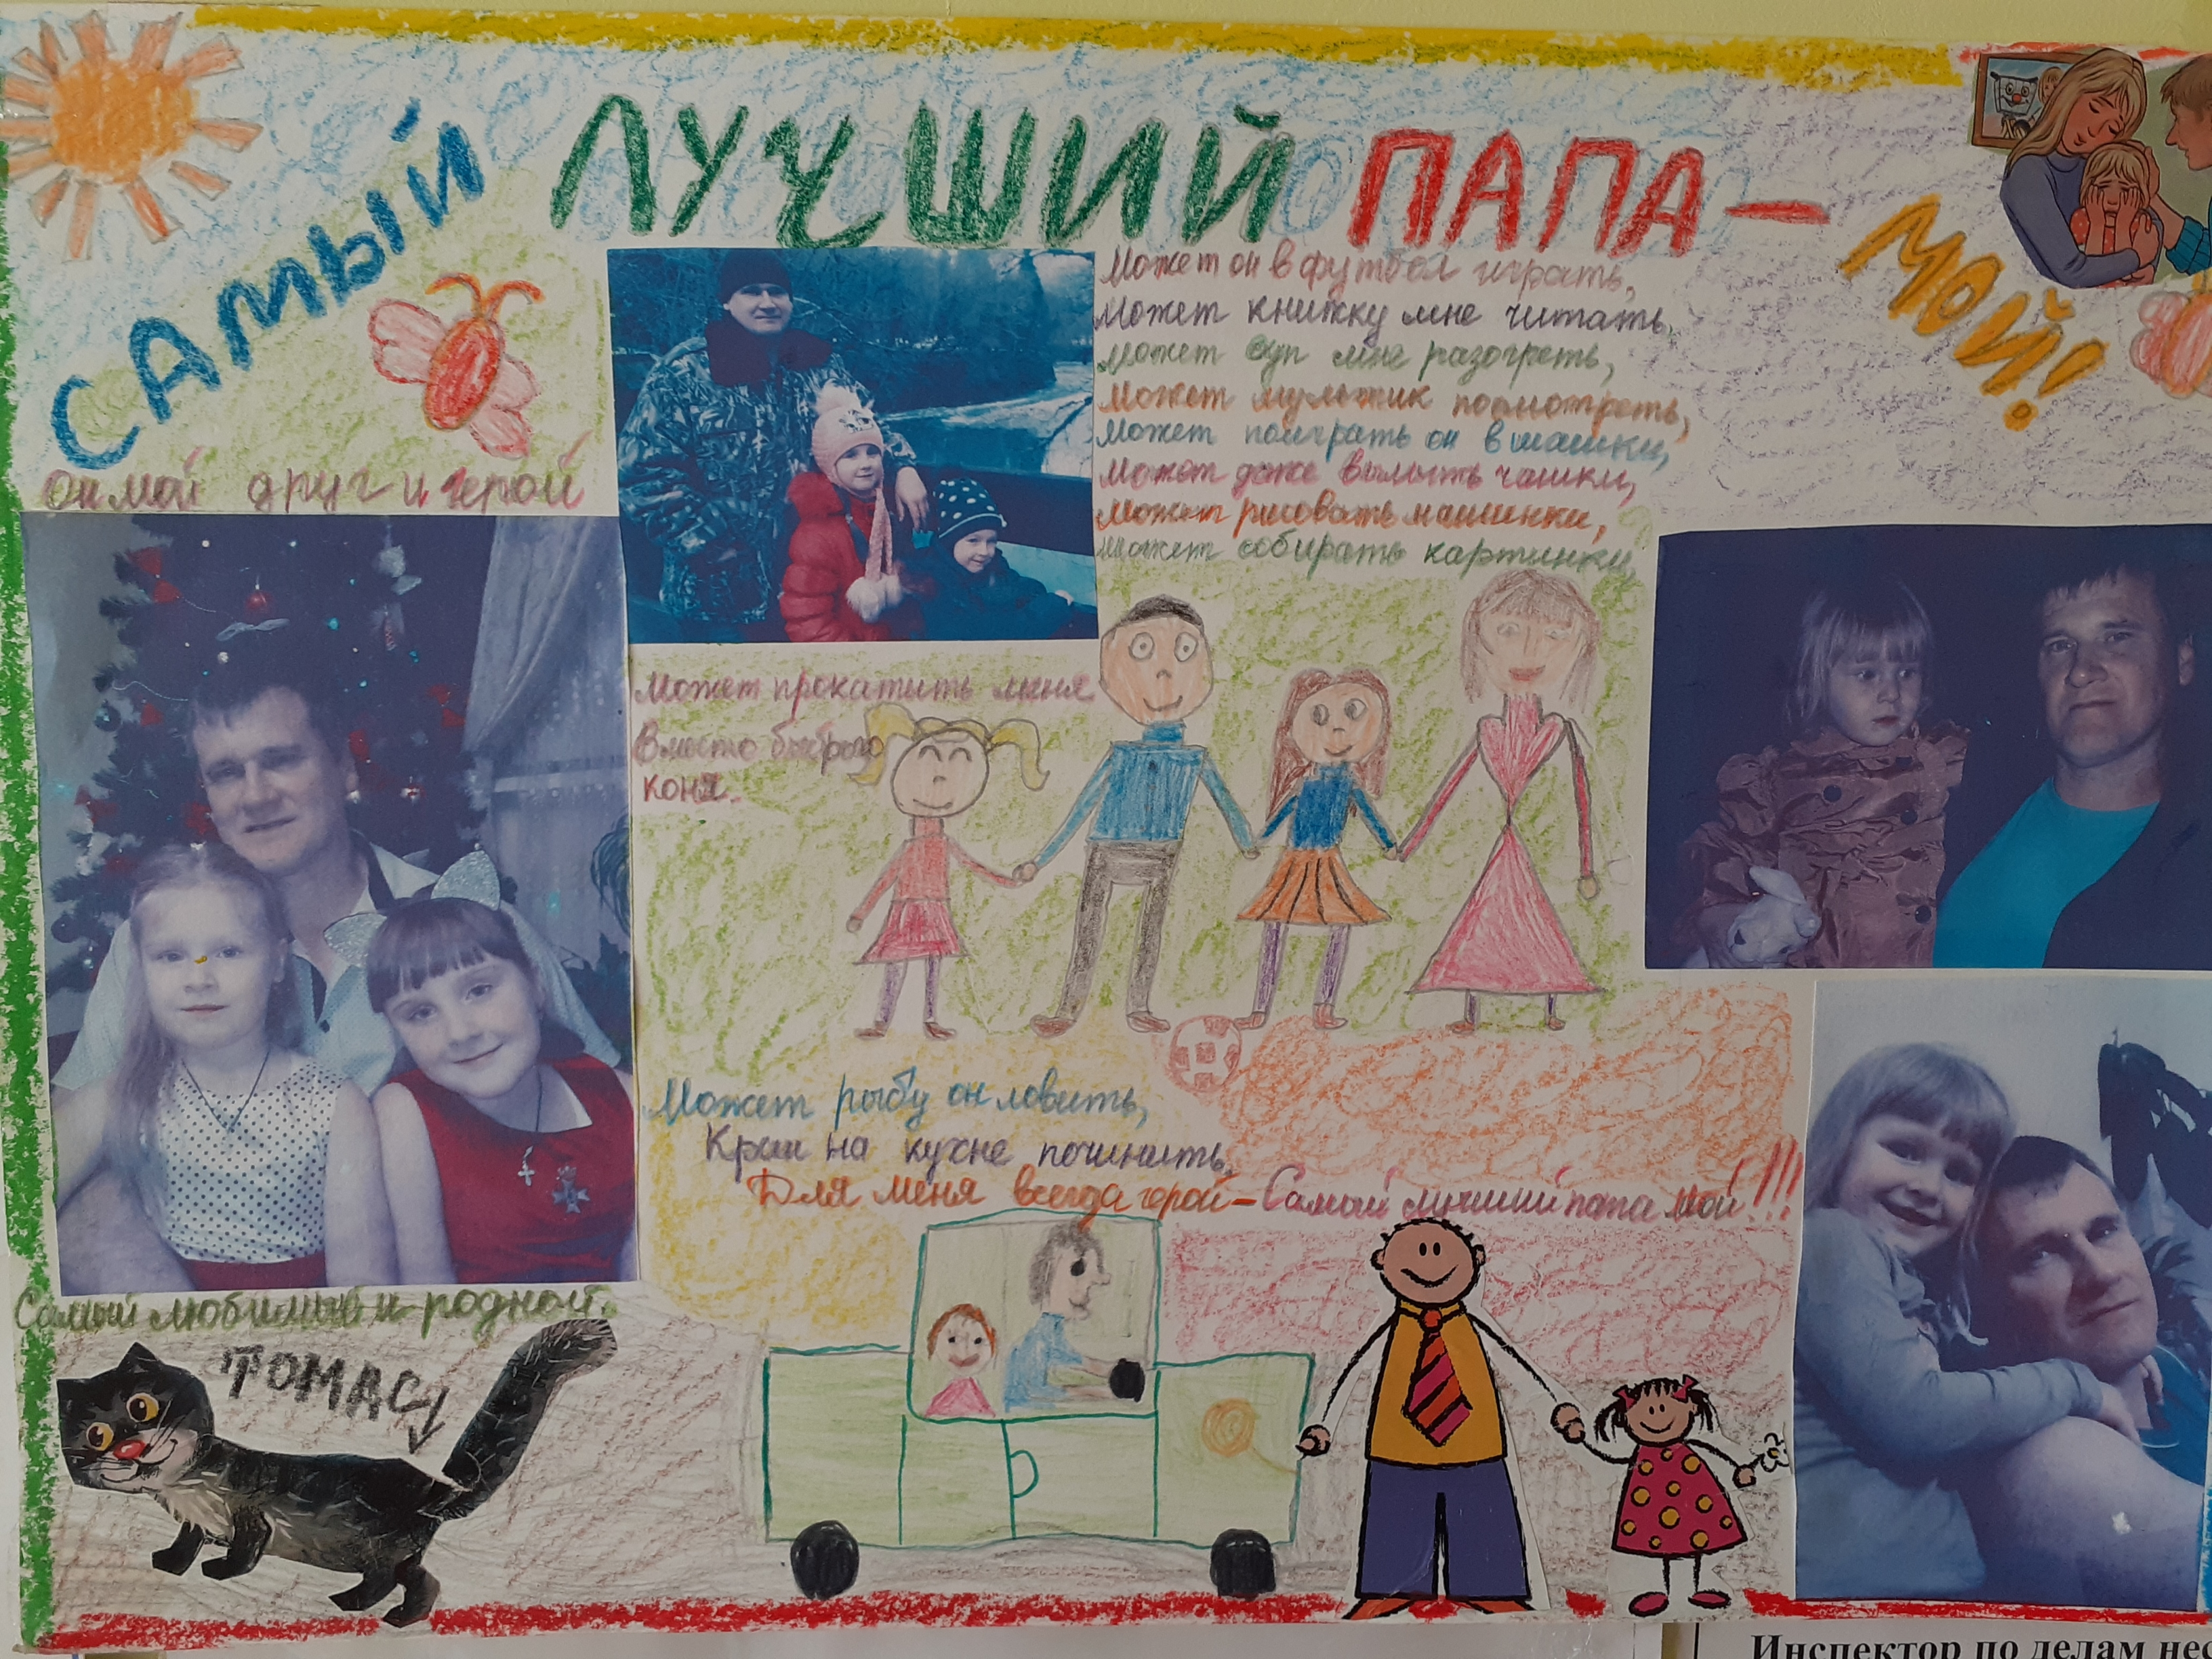 САМЫЙ ЛУЧШИЙ ПАПА –
МОЙ!
Он мой друг и герой
Может он в футбол играть,
Может книжку мне читать,
Может суп мне разогреть,
Может мультик посмотреть,
Может поиграть он в шашки,
Может даже вымыть чашки,
Может рисовать машинки,
Может собирать картинки,
Может прокатить меня
Вместо быстрого
коня.
Может рыбу он ловить,
Кран на кухне починить,
Для меня всегда герой – Самый лучший папа мой!!!
Самый любимый и родной.
ТОМАС
Инспектор по делам нес